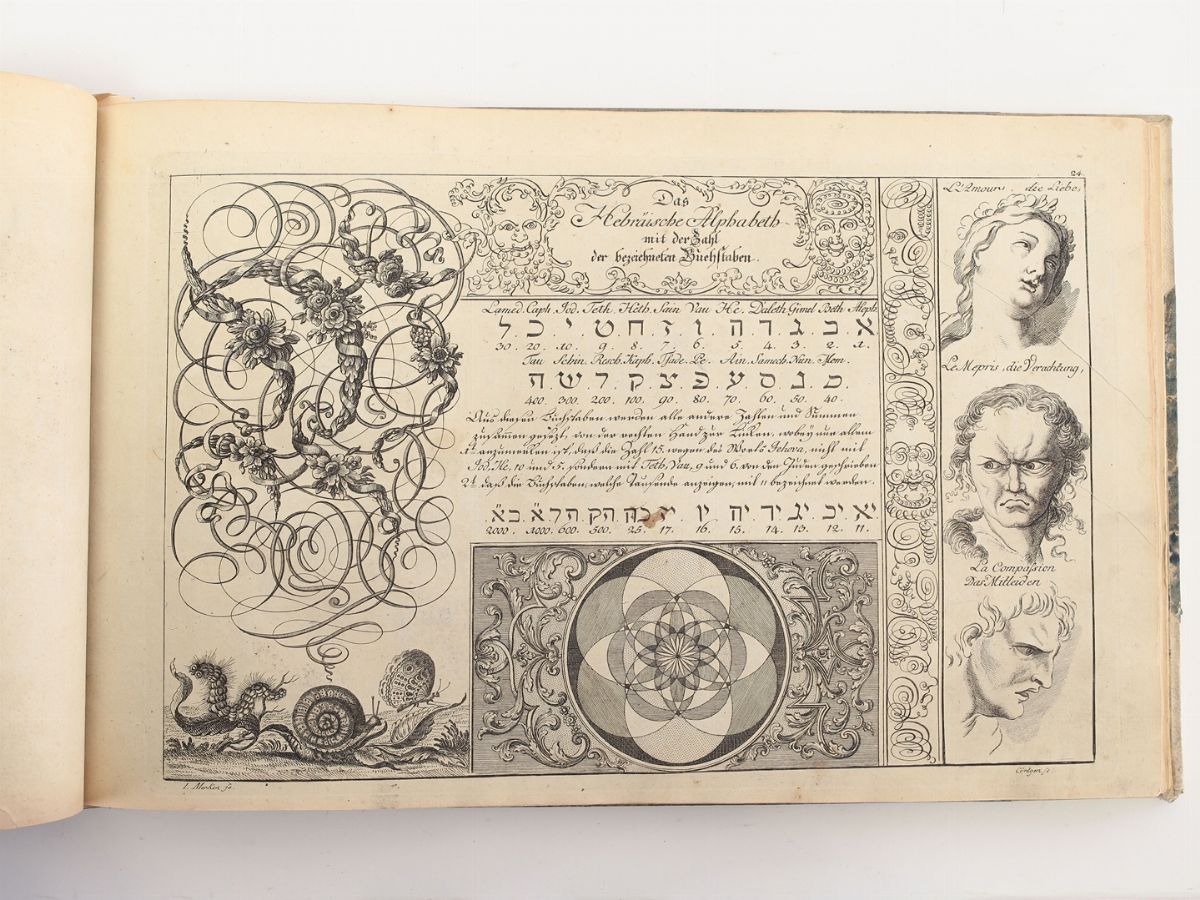 24
Das
Hebräische Alphabeth
mit der Zahl
der bezeichneten Buchstaben.
Lamed. Caph. Jod. Teth. Heth. Sain. Vau. He. Daleth. Gimel. Beth. Aleph.
א.ב.ג.ד.ה.ו.ז.ח.ט.י.כ.ל
30. 20. 10. 9. 8. 7. 6. 5. 4. 3. 2. 1.
Tau. Schin. Resch. Kaph. Tsade. Pe. Ain. Samech. Nun. Mem.
מ.נ.ס.ע.פ.צ.ק.ר.ש.ת
400. 300. 200. 100. 90. 80. 70. 60. 50. 40.
Aus diesen Buchstaben werden alle andere Zahlen und Summen
zusamen gesetzt, von der rechten Hand zur Linken, wobey nur allein
anzumerken ist, dass die Zahl 15. wegen des Worts Jehova, nicht mit
Jod, He, 10 und 5. sondern mit Teth, Vav, 9 und 6. von den Juden geschrieben
2t. dass die Buchstaben, welche Tausende anzeigen, mit " bezeichnet werden.
2000. 1000. 600. 500. 25. 17. 16. 15. 14. 13. 12. 11.
L'Amour, die Liebe,
Le Mepris, die Verachtung,
La Compassion
Das Mitleiden
I. Merken fe.